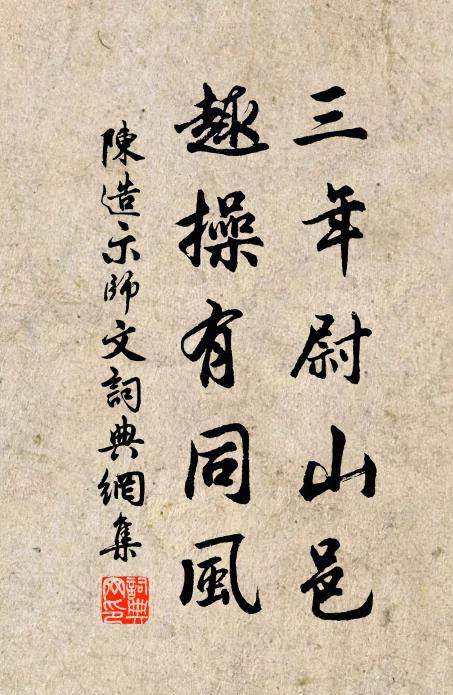 三年尉山邑
趣操有同風
陳造示師文詞典網集
詞典網印